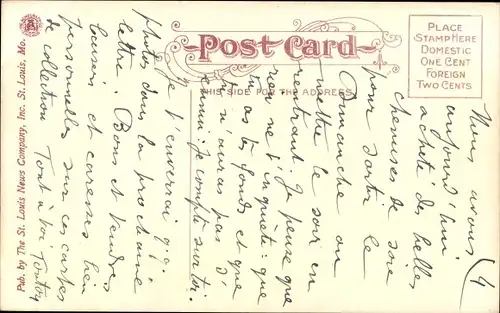 Post Card
THIS SIDE FOR THE ADDRESS
PLACE
STAMP HERE
DOMESTIC
ONE CENT
FOREIGN
TWO CENTS
Pub. by The St. Louis News Company, Inc. St. Louis, Mo.
(4
Nous avons
aujourd'hui
acheté des belles
chemises de soie
pour sortir le
Dimanche ou
mettre le soir en
rentrant. Je pense que
rien ne t'inquiète : que
tu as tes fonds et que
tu n'auras pas d'
ennui : je compte sur toi.
Je t'enverrai qq.
photos dans la prochaine
lettre. Bons et tendres
baisers et caresses bien
personnelles sur ces cartes
de collection Tout à toi